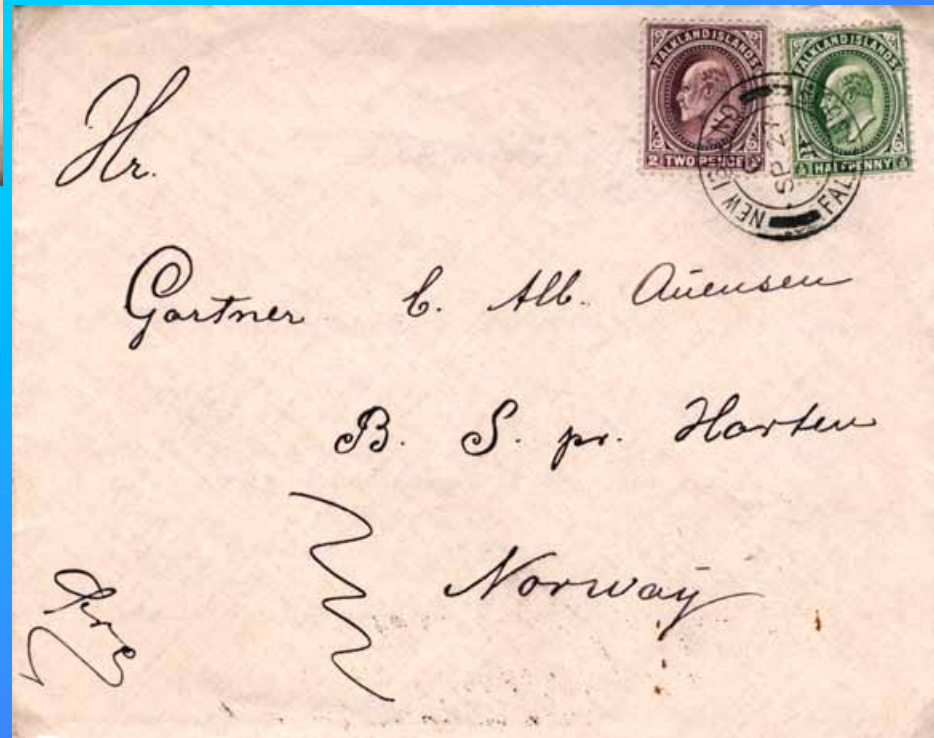 FALKLAND ISLANDS
2 TWO PENCE
FALKLAND ISLANDS
½ HALFPENNY ½
NEW ISLAND
SP 24
FALK
Hr.
Gartner C. Alb. Auensen
B. S. pr. Horten
Norway